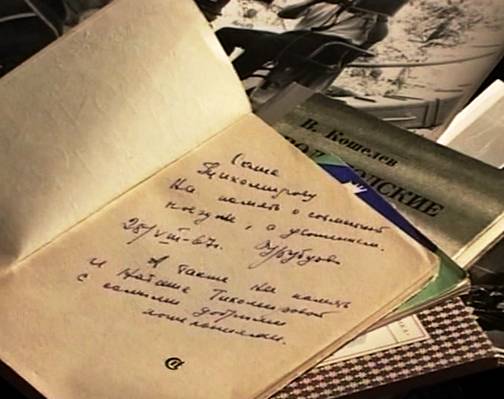 Саше
Тихомирову
На память о совместной
28/VIII-67г. Н Рубцов
А также на память
и Наташе Тихомировой
с самыми добрыми
пожеланиями.
@
В. Кошелев